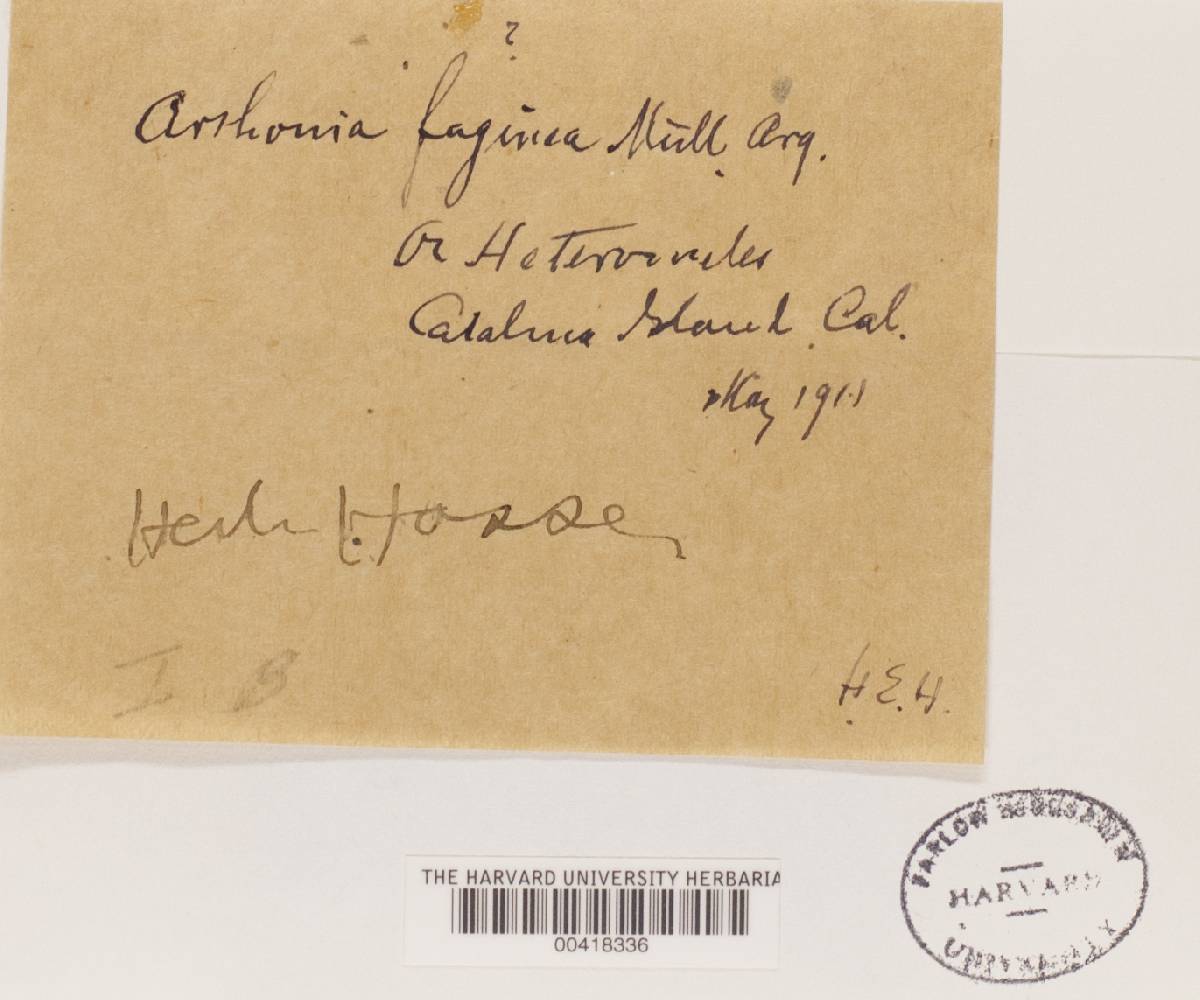 ?
Arthonia faginea Müll. Arg.
On Heteromeles
Catalina Island. Cal.
May 1911
Herb. Hasse
I B
H.E.H.
FARLOW HERBARIUM
HARVARD
UNIVERSITY
THE HARVARD UNIVERSITY HERBARIA
00418336